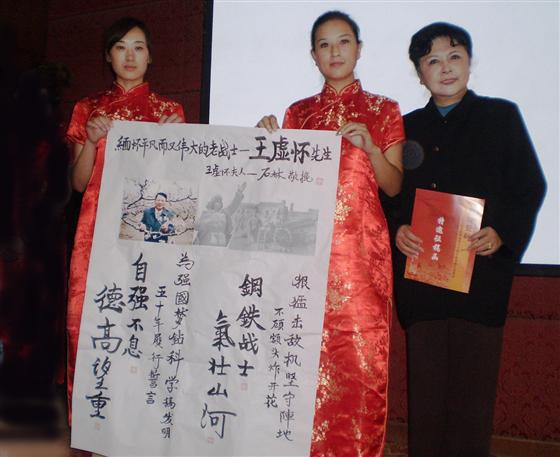 緬怀平凡而又伟大的老战士—王虚怀先生
王虚怀夫人—石林敬
狠猛击敌机坚守陣地
不顾额头炸开花
鋼鉄战士
氣壮山河
為强國梦钻科学搞发明
五十年履行誓言
自强不息
德高望重
特邀